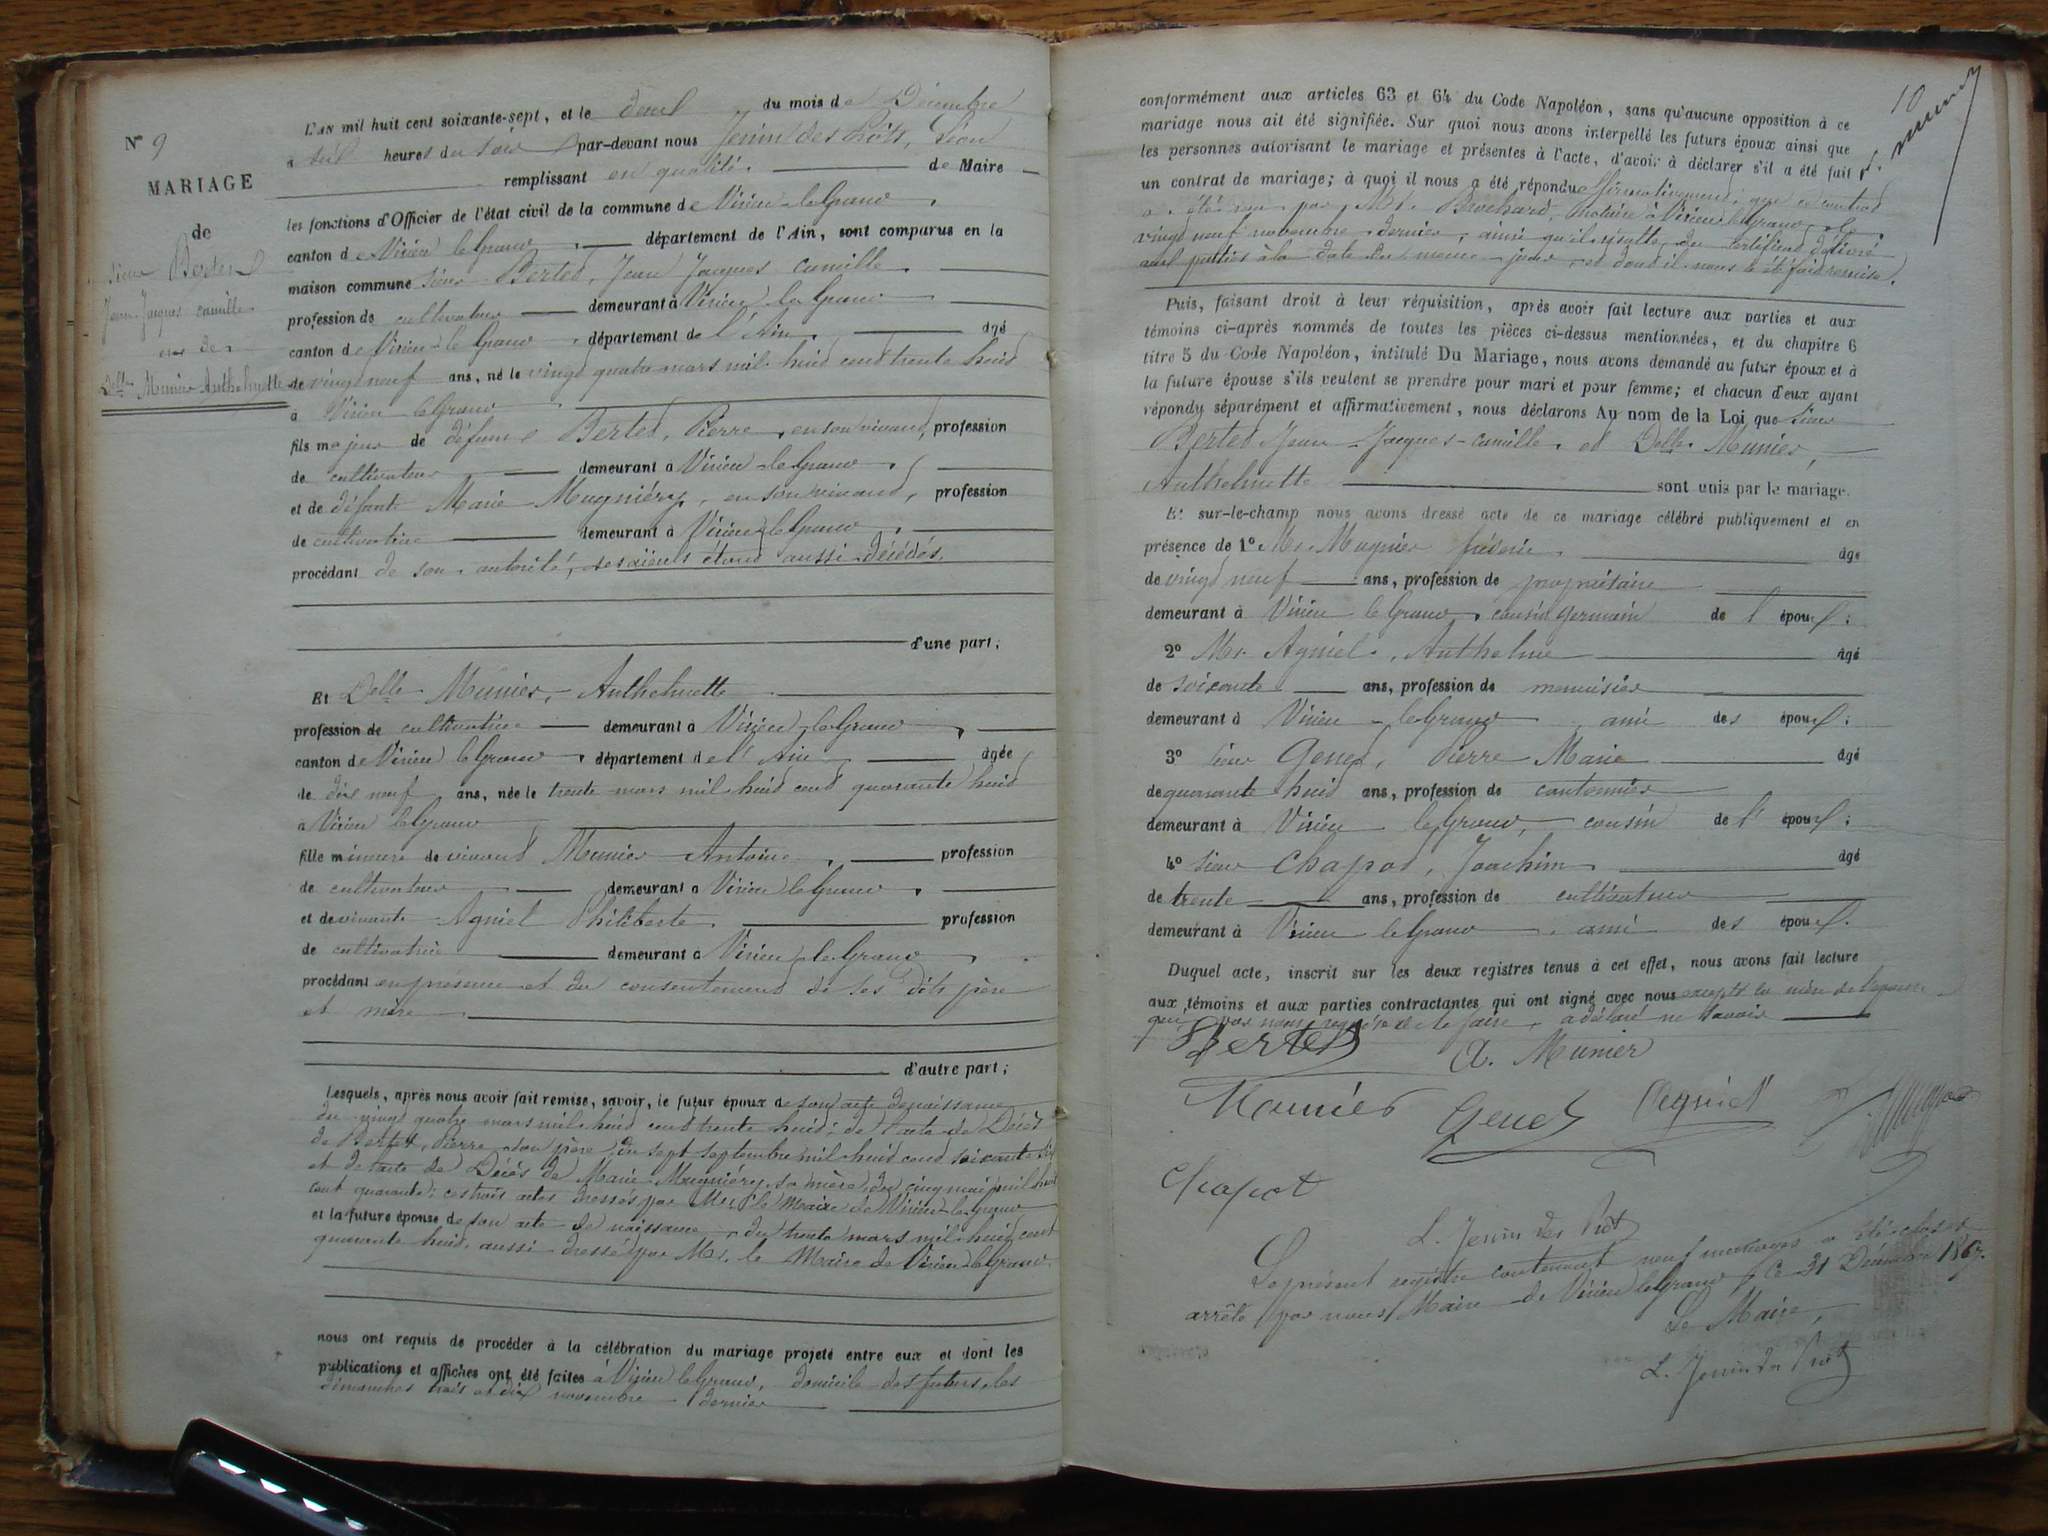 N° 9
MARIAGE
de
sieur Bertet
Jean Jacques camille
et de
Delle Munier Anthelmette
L'AN mil huit cent soixante-sept, et le deux du mois de Décembre
a six heures du soir par-devant nous Jenin des Prôts, Léon
remplissant en qualité de Maire
les fonctions d'Officier de l'état civil de la commune de Virieu-le-Grand
canton de Virieu le Grand, département de l'Ain, sont comparus en la
maison commune sieur Bertet, Jean Jacques camille
profession de cultivateur demeurant à Virieu le Grand
canton de Virieu-le Grand département de l'Ain, âgé
de vingt neuf ans, né le vingt quatre mars mil huit cent trente huit
à Virieu-le Grand
fils majeur de défunt Bertet, Pierre, en son vivant, profession
de cultivateur demeurant à Virieu-le Grand
et de défunte Marie Mugniéry, en son vivant, profession
de cultivatrice demeurant à Virieu le Grand
procédant de son autorité, ses aïeuls étant aussi décédés.
d'une part;
Et Delle Munier, Anthelmette
profession de cultivatrice demeurant à Virieu-le Grand
canton de Virieu le Grand, département de l'Ain âgée
de dix neuf ans, née le trente mars mil huit cent quarante huit
à Virieu le Grand
fille mineure de vivant Munier Antoine, profession
de cultivateur demeurant à Virieu le Grand
et de vivante Agniel Philiberte profession
de cultivatrice demeurant à Virieu-le Grand
procédant en présence et du consentement de ses dits père
et mère
d'autre part;
Lesquels, après nous avoir fait remise, savoir, le futur époux de son acte de naissance
du vingt quatre mars mil huit cent trente huit; de l'acte de Décès
de Bertet, Pierre son père, du sept septembre mil huit cent soixante six
et de l'acte de Décès de Marie Mugniéry, sa mère, du cinq mai mil huit
cent quarante; ces trois actes dressés par Mr. le Maire de Virieu-le-Grand
et la future épouse de son acte de naissance, du trente mars mil huit cent
quarante huit, aussi dressé par Mr. le Maire de Virieu-le Grand
nous ont requis de procéder à la célébration du mariage projeté entre eux et dont les
publications et affiches ont été faites à Virieu le Grand, domicile des futurs, les
dimanches trois et dix novembre dernier
10
conformément aux articles 63 et 64 du Code Napoléon, sans qu'aucune opposition à ce
mariage nous ait été signifiée. Sur quoi nous avons interpellé les futurs époux ainsi que
les personnes autorisant le mariage et présentes à l'acte, d'avoir à déclarer s'il a été fait
un contrat de mariage; à quoi il nous a été répondu affirmativement, que ce contrat
a été reçu par Me Brochard, notaire à Virieu le Grand, le
vingt neuf novembre dernier, ainsi qu'il résulte du certificat délivré
aux parties à la date du même jour, et dont il nous a été fait remise.
Puis, faisant droit à leur réquisition, après avoir fait lecture aux parties et aux
témoins ci-après nommés de toutes les pièces ci-dessus mentionnées, et du chapitre 6
titre 5 du Code Napoléon, intitulé Du Mariage, nous avons demandé au futur époux et à
la future épouse s'ils veulent se prendre pour mari et pour femme; et chacun d'eux ayant
répondu séparément et affirmativement, nous déclarons Au nom de la Loi que sieur
Bertet Jean Jacques-camille, et Delle Munier,
Anthelmette sont unis par le mariage.
Et sur-le-champ nous avons dressé acte de ce mariage célébré publiquement et en
présence de 1° Mr. Mugnier frédéric âgé
de vingt neuf ans, profession de propriétaire
demeurant à Virieu le Grand, cousin germain de l'époux;
2° Mr. Agniel, Anthelme âgé
de soixante ans, profession de menuisier
demeurant à Virieu-le Grand ami des époux;
3° sieur Genet, Pierre Marie âgé
de quarante huit ans, profession de cantonnier
demeurant à Virieu le Grand, cousin de l'époux;
4° sieur Chapot, Joachim âgé
de trente ans, profession de cultivateur
demeurant à Virieu le Grand ami des époux.
Duquel acte, inscrit sur les deux registres tenus à cet effet, nous avons fait lecture
aux témoins et aux parties contractantes qui ont signé avec nous excepté la mère de l'épouse
qui, par nous requise de le faire, a déclaré ne savoir
Bertet A. Munier
Mounier Genet Agniel
Chapot
L. Jenin des Prôts
Le présent registre contenant neuf mariages a été clos et
arrêté par nous Maire de Virieu le Grand, ce 31 Décembre 1867.
Le Maire,
L. Jenin des Prôts